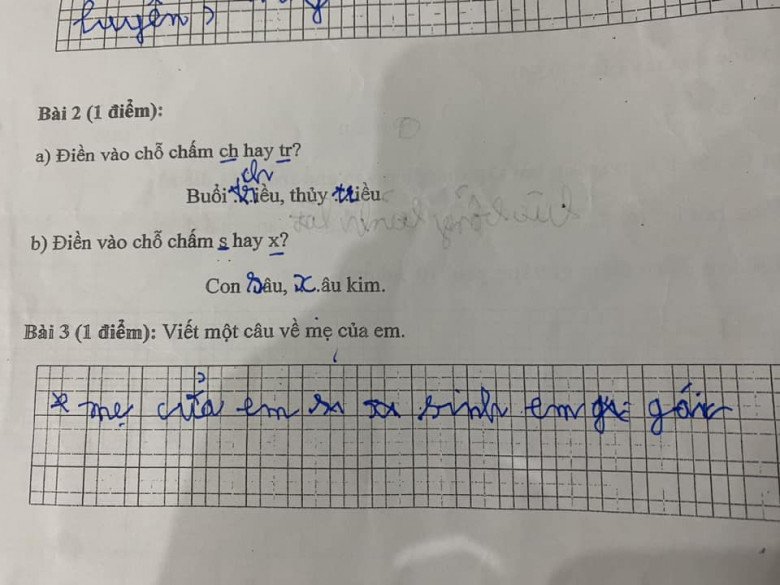 truyện?
Bài 2 (1 điểm):
a) Điền vào chỗ chấm ch hay tr?
ch
Buổi triều, thủy triều
b) Điền vào chỗ chấm s hay x?
Con sâu, x.âu kim.
Bài 3 (1 điểm): Viết một câu về mẹ của em.
* mẹ của em sinh em gái